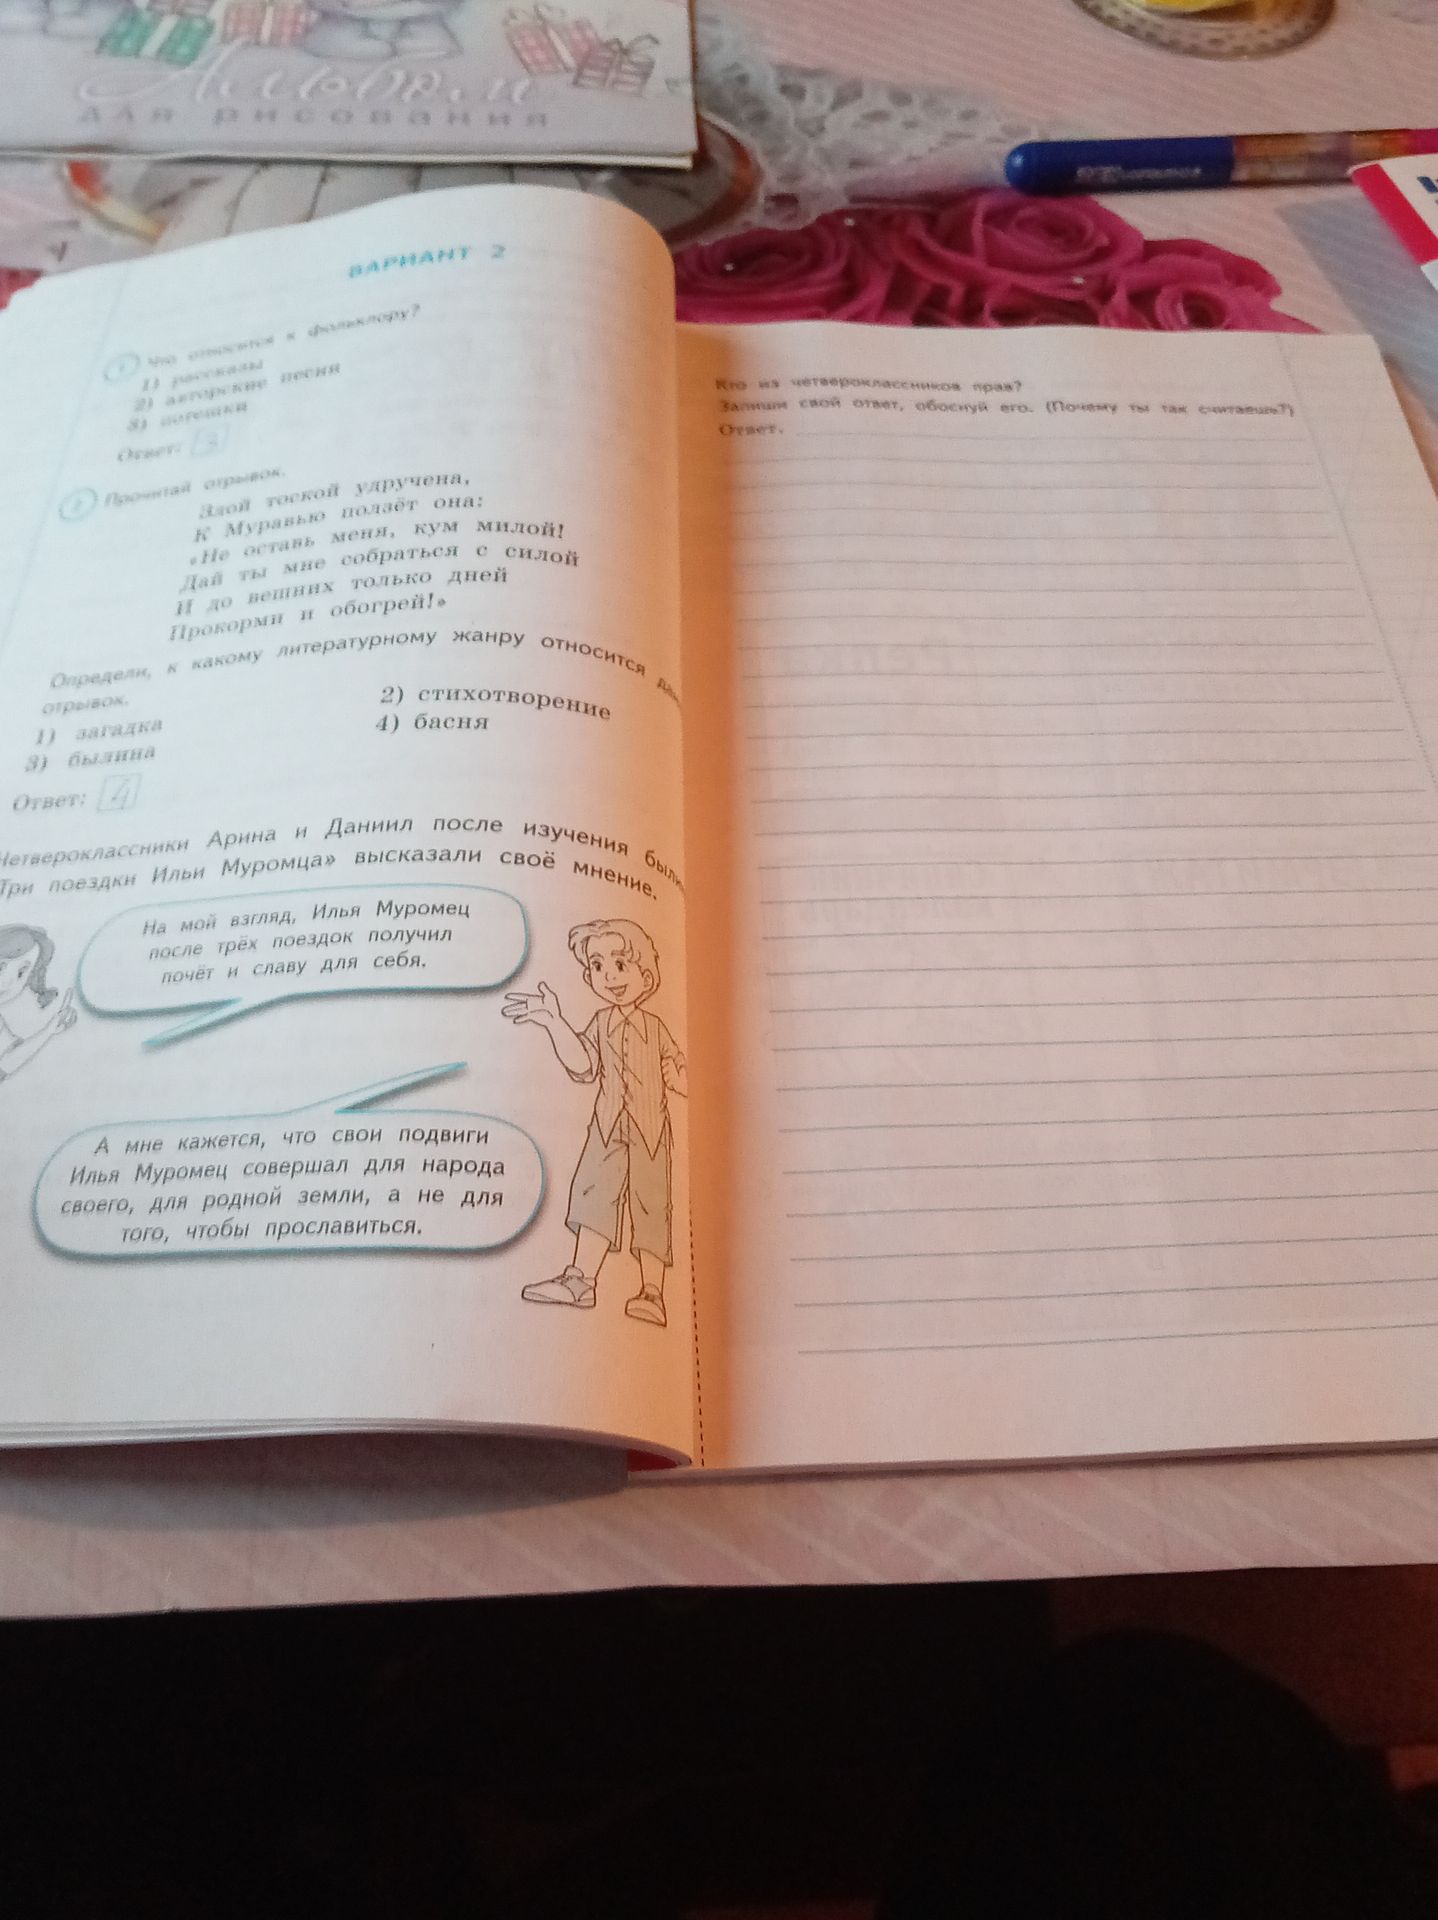 Альбом
для рисования
ВАРИАНТ 2
1 Что относится к фольклору?
1) рассказы
2) авторские песни
3) потешки
Ответ: 3
2 Прочитай отрывок.
Злой тоской удручена,
К Муравью ползёт она:
«Не оставь меня, кум милой!
Дай ты мне собраться с силой
И до вешних только дней
Прокорми и обогрей!»
Определи, к какому литературному жанру относится
отрывок.
1) загадка 2) стихотворение
3) былина 4) басня
Ответ: 4
Четвероклассники Арина и Даниил после изучения
Три поездки Ильи Муромца» высказали своё мнение.
На мой взгляд, Илья Муромец
после трёх поездок получил
почёт и славу для себя.
А мне кажется, что свои подвиги
Илья Муромец совершал для народа
своего, для родной земли, а не для
того, чтобы прославиться.
Кто из четвероклассников прав?
Запиши свой ответ, обоснуй его. (Почему ты так считаешь?)
Ответ.